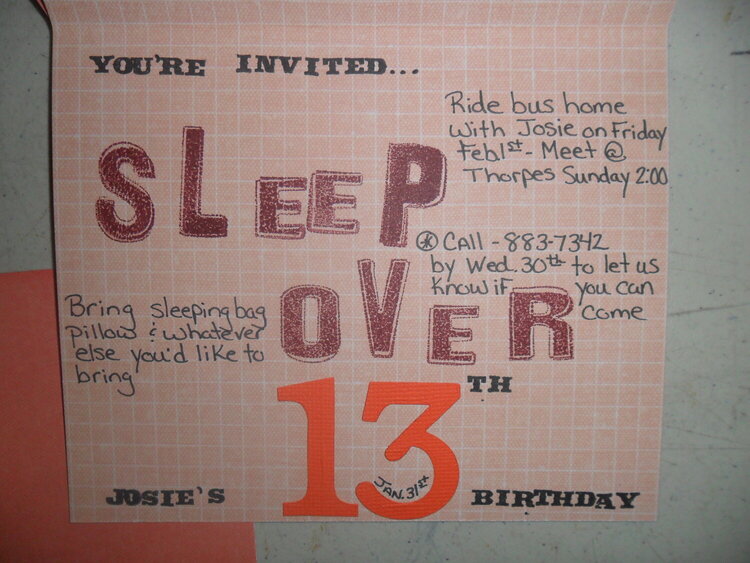 YOU'RE INVITED...
Ride bus home
with Josie on Friday
Feb1st - Meet @
Thorpes Sunday 2:00
SLEEP
* CALL - 883-7342
by Wed. 30th to let us
know if you can
come
OVER
Bring sleeping bag
pillow & whatever
else you'd like to
bring
13TH
JAN. 31st
JOSIE'S BIRTHDAY